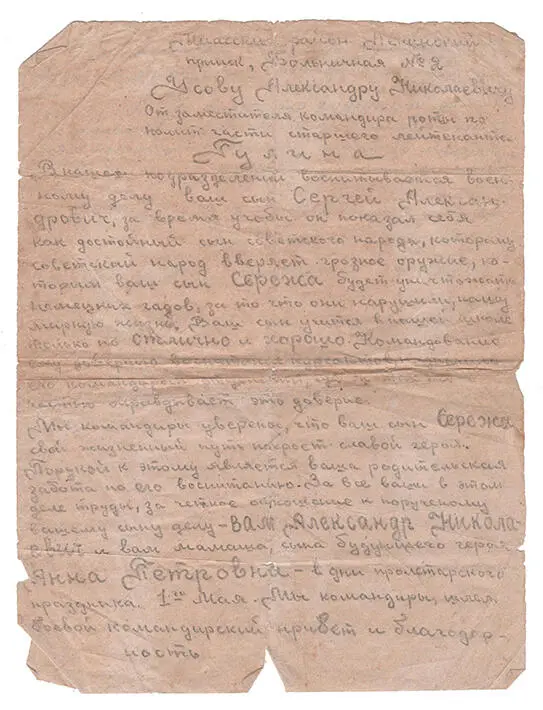 Миасский район Ленинский
прииск, Больничная № 2
Усову Александру Николаевичу
От заместителя командира роты по
полит части старшего лейтенанта
Гулина
В нашем подразделении воспитывается воен-
ному делу ваш сын Сергей Алексан-
дрович, за время учебы он показал себя
как достойный сын советского народа, которому
советский народ вверяет грозное оружие, ко-
торым ваш сын Сережа будет уничтожать
немецких гадов, за то что они нарушили, нашу
мирную жизнь. Ваш сын учится в нашей школе
только на отлично и хорошо. Командование
ему доверило
его командиром
честью оправдывает это доверие.
Мы командиры уверены, что ваш сын Сережа
свой жизненный путь покроет славой героя.
Порукой к этому является ваша родительская
забота по его воспитанию. За все ваши в этом
деле труды, за честное отношение к порученому
вашему сыну делу – Вам Александр Никола-
евич и вам мамаша, сына будующего героя
Анна Петровна – в дни пролетарского
праздника. 1го Мая. Мы командиры, шлем
боевой командирский привет и благодар-
ность.